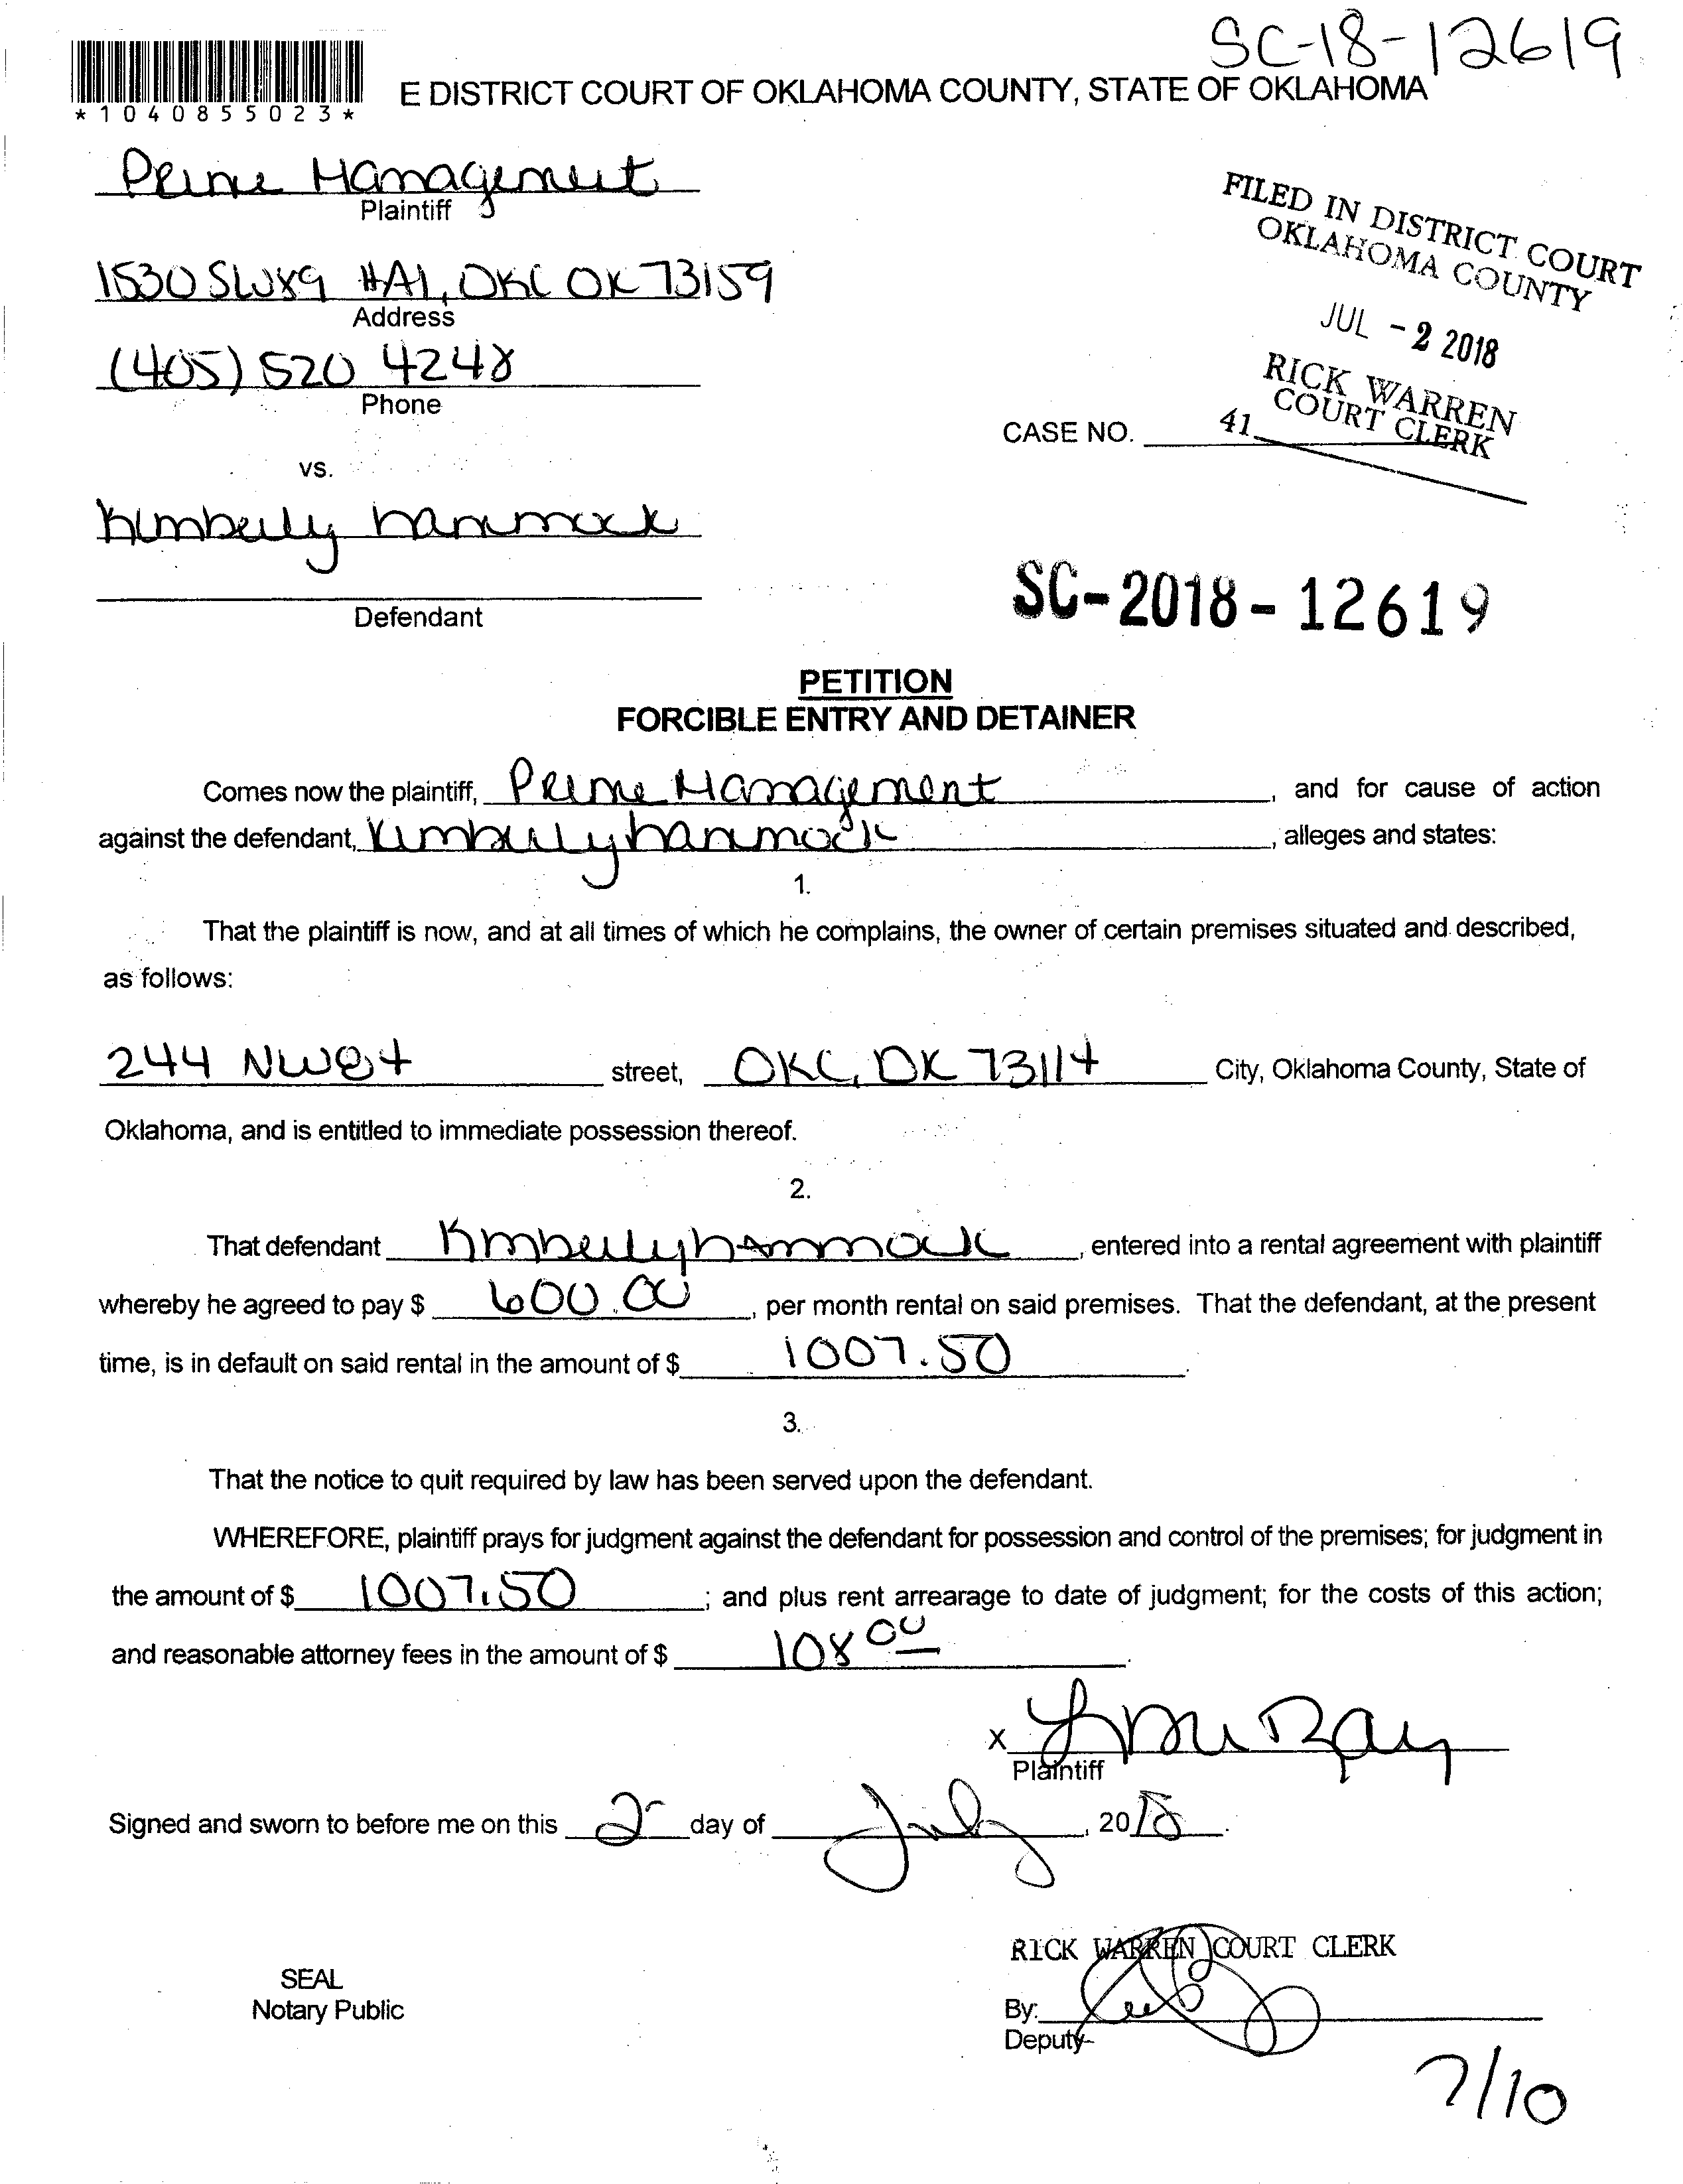 SC-18-12619
*1040855023*
E DISTRICT COURT OF OKLAHOMA COUNTY, STATE OF OKLAHOMA
Prime Management
Plaintiff
1530 SW89 #A1, OKC OK 73159
Address
(405) 520 4248
Phone
FILED IN DISTRICT COURT
OKLAHOMA COUNTY
JUL - 2 2018
RICK WARREN
COURT CLERK
41
CASE NO.
vs.
Kimberly hammock
Defendant
SC-2018-12619
PETITION
FORCIBLE ENTRY AND DETAINER
Comes now the plaintiff, Prime Management, and for cause of action
against the defendant, Kimberly hammock, alleges and states:
1.
That the plaintiff is now, and at all times of which he complains, the owner of certain premises situated and described,
as follows:
244 NW84 street, OKC, OK 73114 City, Oklahoma County, State of
Oklahoma, and is entitled to immediate possession thereof.
2.
That defendant Kimberly hammock, entered into a rental agreement with plaintiff
whereby he agreed to pay $ 600.00, per month rental on said premises. That the defendant, at the present
time, is in default on said rental in the amount of $ 1007.50.
3.
That the notice to quit required by law has been served upon the defendant.
WHEREFORE, plaintiff prays for judgment against the defendant for possession and control of the premises; for judgment in
the amount of $ 1007.50; and plus rent arrearage to date of judgment; for the costs of this action;
and reasonable attorney fees in the amount of $ 108 00.
X
Plaintiff
Signed and sworn to before me on this 2 day of July, 2018.
RICK WARREN COURT CLERK
SEAL
Notary Public
By:
Deputy
7/10